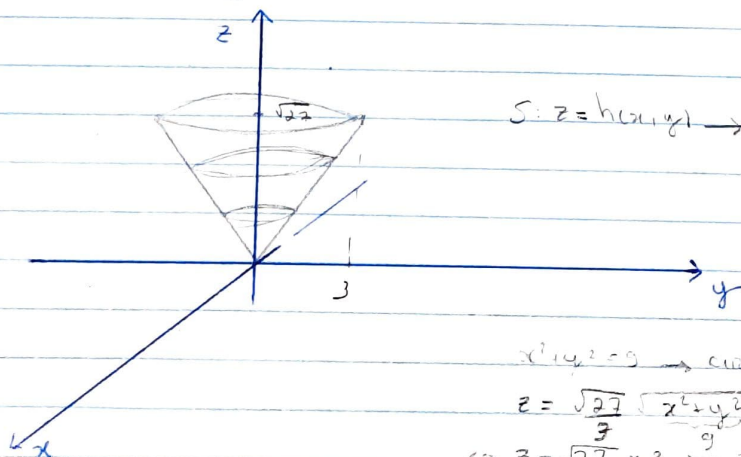 z
√27
S: z = h(x,y) →
3
y
x² + y² = 9 →
z = √27/3 √x² + y²
9
x